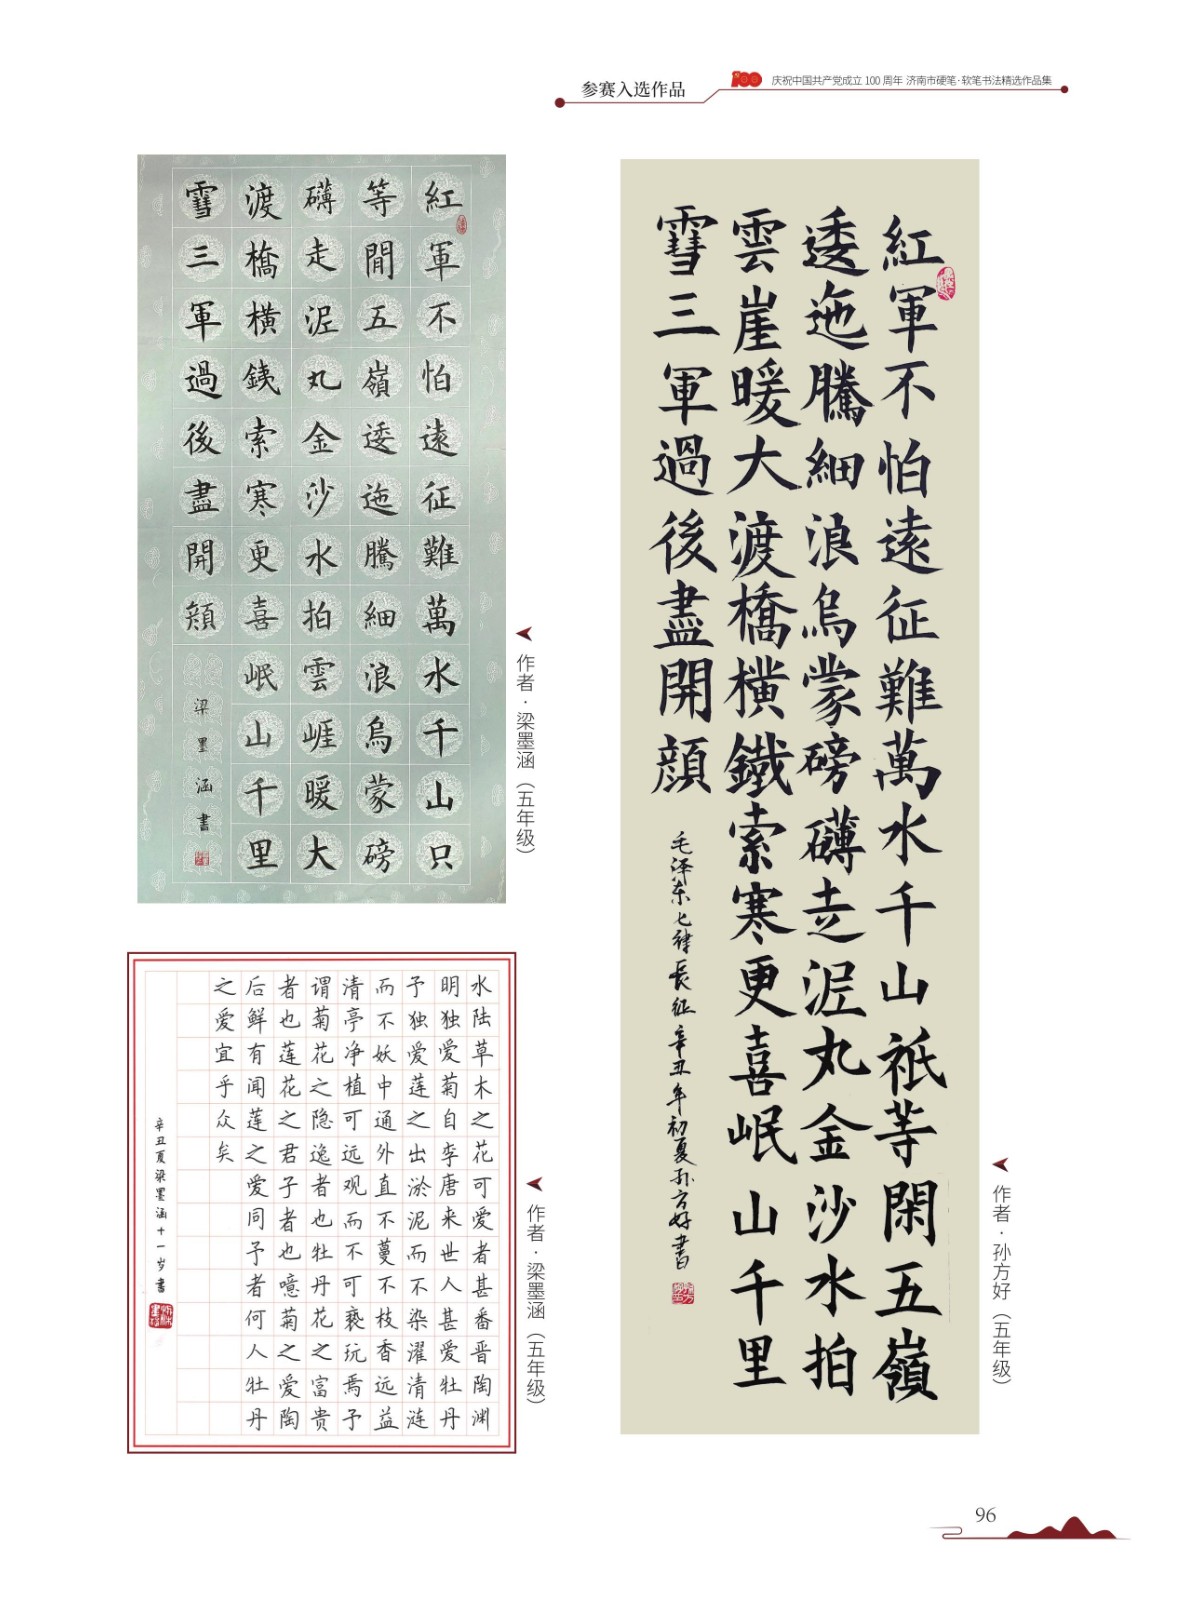 参赛入选作品
庆祝中国共产党成立 100 周年 济南市硬笔·软笔书法精选作品集
紅軍不怕遠征難萬水千山只
等閒五嶺逶迤騰細浪烏蒙磅
礴走泥丸金沙水拍雲崕暖大
渡橋橫銕索寒更喜岷山千里
雪三軍過後盡開頬
梁墨涵書
作者·梁墨涵（五年级）
水陆草木之花可爱者甚番晋陶渊
明独爱菊自李唐来世人甚爱牡丹
予独爱莲之出淤泥而不染濯清涟
而不妖中通外直不蔓不枝香远益
清亭净植可远观而不可亵玩焉予
谓菊花之隐逸者也牡丹花之富贵
者也莲花之君子者也噫菊之爱陶
后鲜有闻莲之爱同予者何人牡丹
之爱宜乎众矣
辛丑夏梁墨涵十一岁书
作者·梁墨涵（五年级）
紅軍不怕遠征難萬水千山祇等閑五嶺
逶迤騰細浪烏蒙磅礴走泥丸金沙水拍
雲崖暖大渡橋横鐵索寒更喜岷山千里
雪三軍過後盡開顔
毛泽东七律長征辛丑年初夏孙方好書
作者·孙方好（五年级）
96